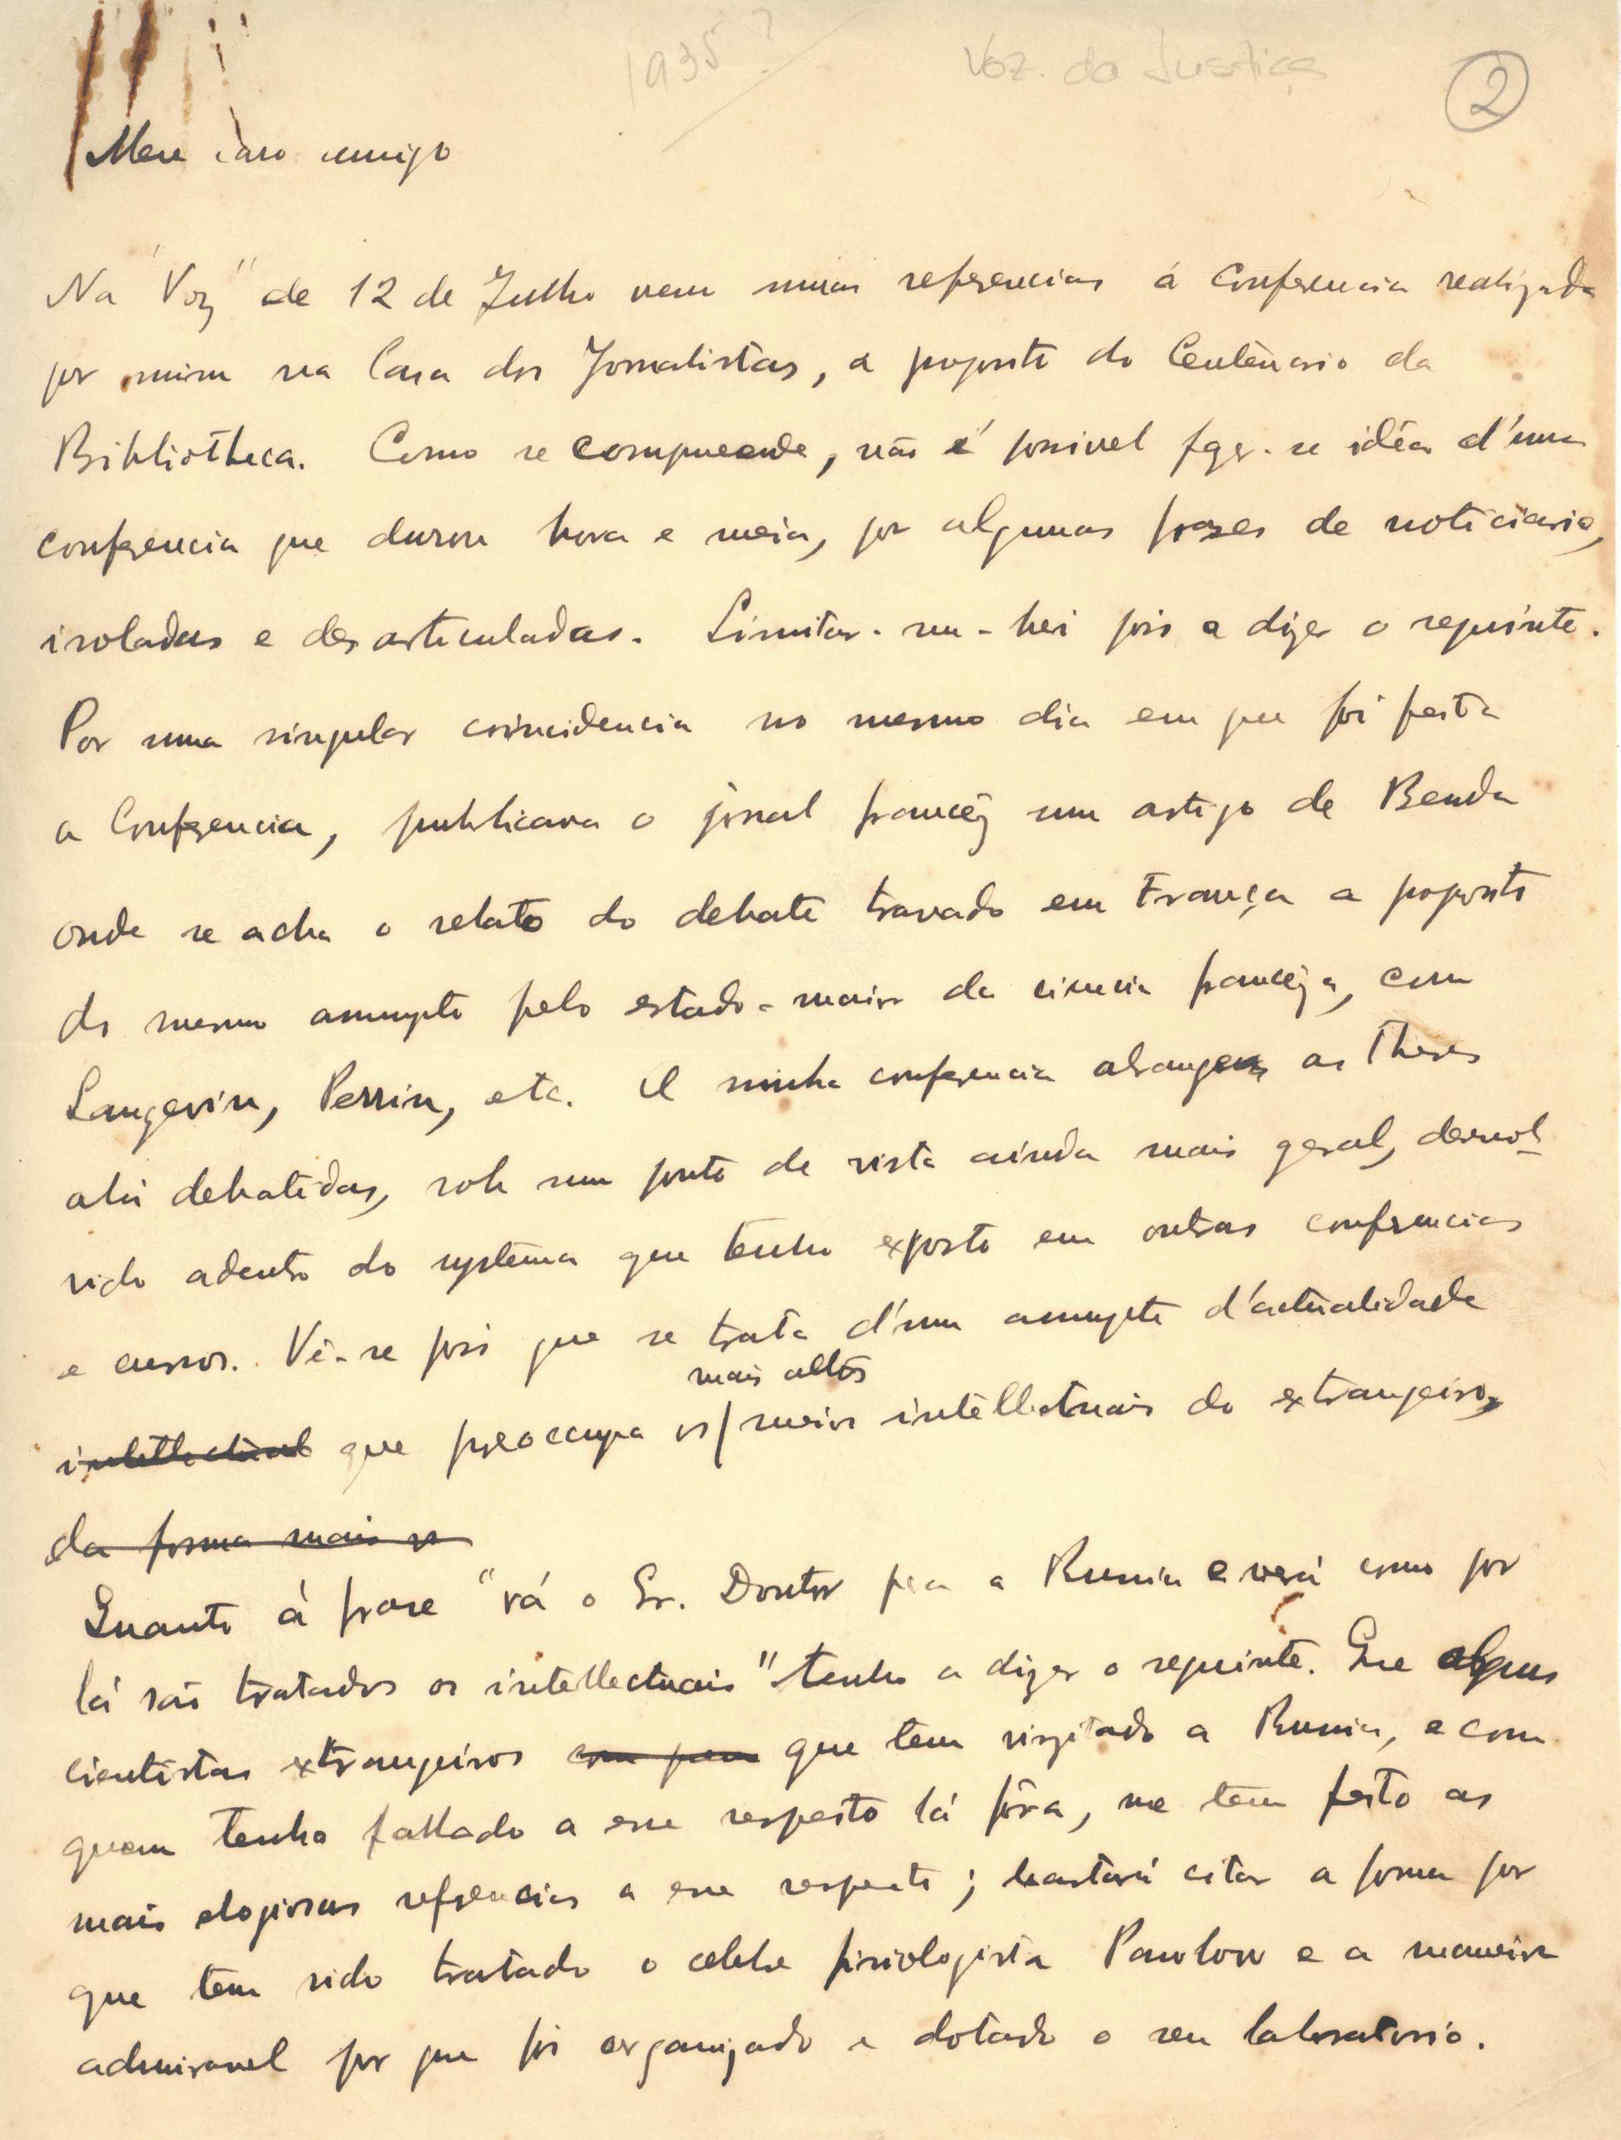 1935?
Voz da Justiça
2
Meu caro amigo
Na "Voz" de 12 de Julho vem umas referencias á Conferencia realizada
por mim na Casa dos Jornalistas, a proposito do Centenario da
Bibliotheca. Como se compreende, não é possivel fazer-se idéa d'uma
conferencia que durou hora e meia, por algumas frases de noticiario,
isoladas e desarticuladas. Limitar-me-hei pois a dizer o seguinte.
Por uma singular coincidencia no mesmo dia em que foi feita
a Conferencia, publicava o jornal francêz um artigo de Benda
onde se acha o relato do debate travado em França a proposito
do mesmo assumpto pelo estado-maior da sciencia francêza, com
Langevin, Perrin, etc. A minha conferencia abrangeu as Theses
ahi debatidas, sob um ponto de vista ainda mais geral, desenvol-
vido adentro do systema que tenho exposto em outras conferencias
e cursos. Vê-se pois que se trata d'um assumpto d'actualidade
mais altos
intellectual que preoccupa os/meios intellectuais do extrangeiro,
da forma mais se
Quanto á frase "vá o Sr. Doutor para a Russia e verá como por
lá são tratados os intellectuais" tenho a dizer o seguinte. Que alguns
cientistas extrangeiros com quem que tem visitado a Russia, e com
quem tenho fallado a esse respeito lá fóra, me tem feito as
mais elogiosas referencias a esse respeito; bastará citar a forma por
que tem sido tratado o celebre fisiologista Pawlow e a maneira
admiravel por que foi organizado e dotado o seu laboratorio.